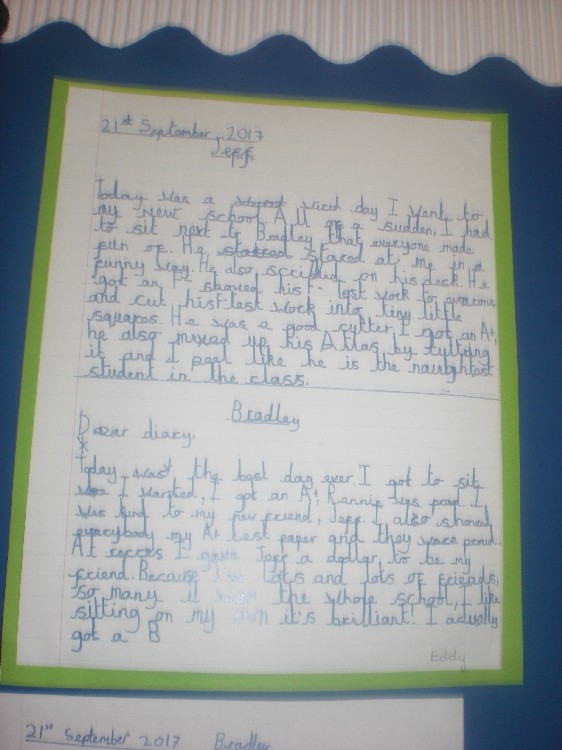 21st September 2017
Jeff
Today was a wierd day I want to
my new school. All of a sudden, I had
to sit next to Bradley that everyone made
fun of. He stared at me in a
funny way. He also scribled on his deck. He
got an F- showed his test work for everyone
and cut his test work into tiny little
squares. He was a good cutter. I got an A+,
he also mixed up his Atlas by
it and I feel like he is the naughtest
student in the class.
Bradley
Dear diary,
Today was the best day ever. I got to sit
I wanted, I got an A+,
was kind to my new friend, Jeff. I also showed
everybody my A+ test paper and they were proud.
At recces I gave Jeff a dollar, to be my
friend. Because lots and lots of friends,
so many it the whole school, I like
sitting on my own it's brilliant! I actually
got a B
Eddy
21st September 2017 Bradley